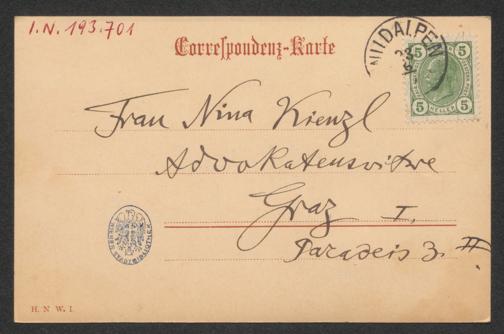 I.N. 193.701
Correspondenz-Karte
WILDALPEN
5 5
5 HELLER 5
Frau Nina Kienzl
Advokatenswitwe
Graz I.
Paradeis 3. II
WIENER STADTBIBLIOTHEK
H. N. W. I.